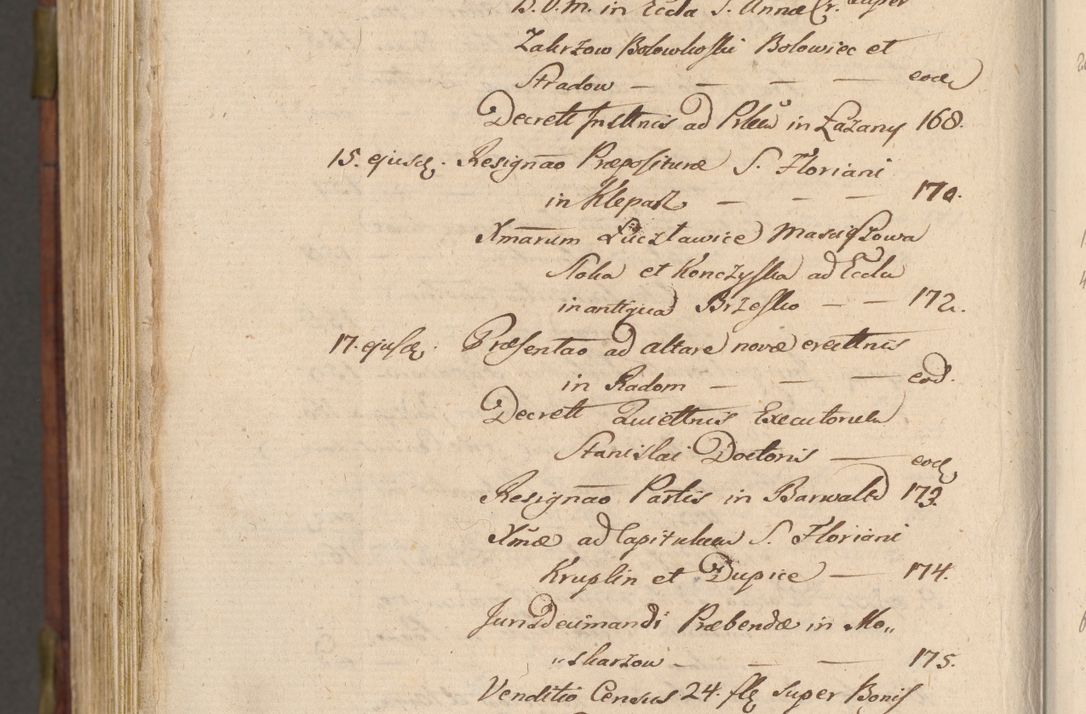 B.V.M. in Eccla S. Annæ Cr. super
Zakrzow Bolowkoski Bolowiec et
Stradow — — — — eod
Decrett Insttnis ad Prlem in Łażany 168.
15. ejusq. Resignao Præposituræ S. Floriani
in Klepaz — — — 170.
Xmarum Luczławice Maszqszowa
Stoka et Konczyska ad Eccla
in antiqua Brzesko — — 172.
17. ejusq. Præsentao ad altare novæ erecttnis
in Radom — — — eod.
Decrett Quiettnis Executorum
Stanislai Doctoris — eod
Resignao Partis in Barwald 173.
Xmæ ad Capitulum S. Floriani
Kruplin et Dupice — 174.
Juris Decimandi Præbendæ in Mo„
„skarzow — — — 175.
Venditio Census 24. flę super Bonis